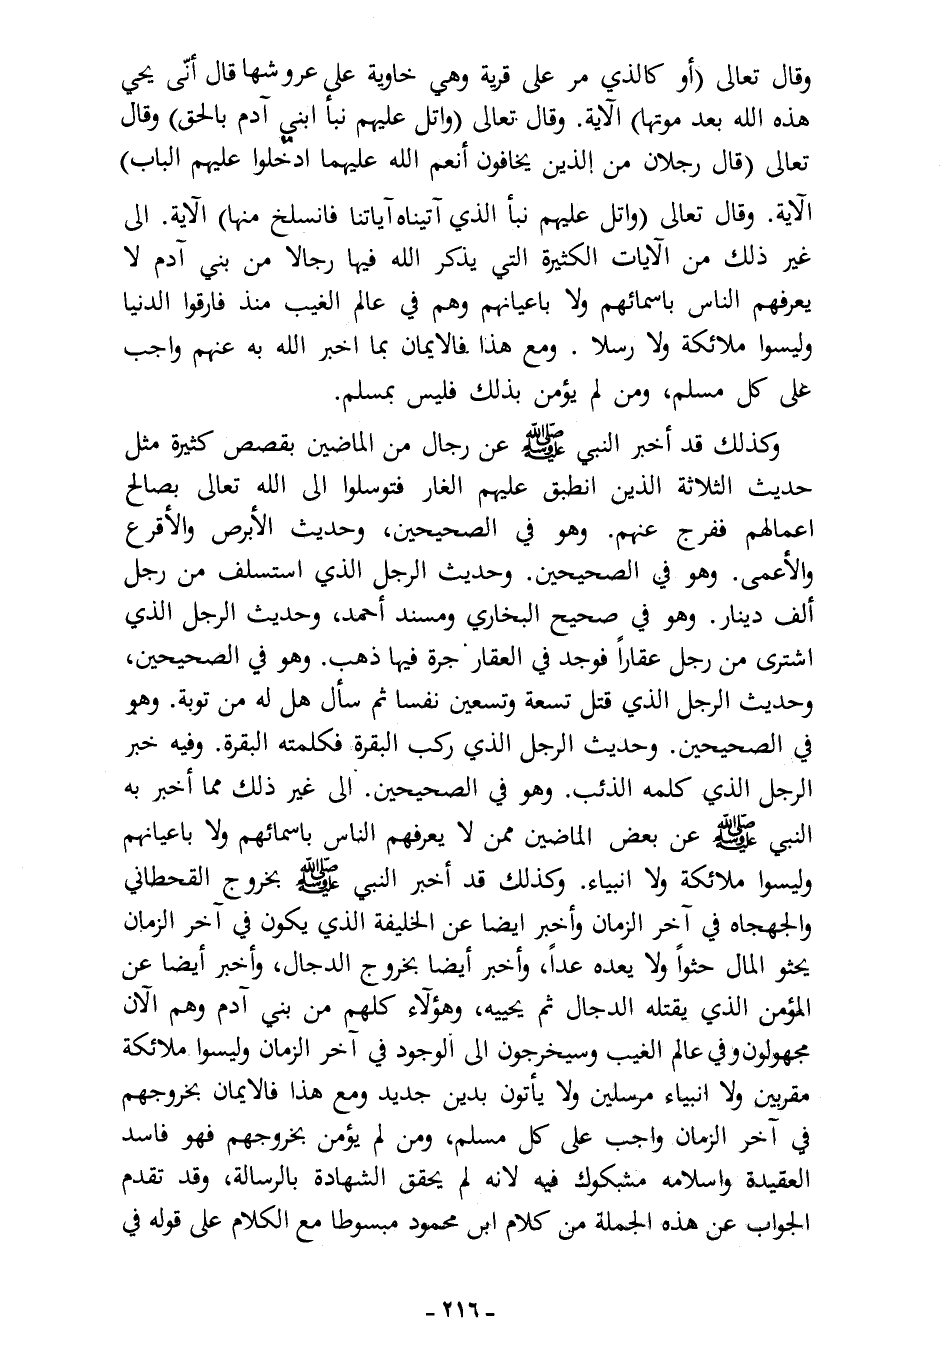 وقال تعالى (أو كالذي مر على قرية وهي خاوية على عروشها قال أنّى يحي
هذه الله بعد موتها) الآية. وقال تعالى (واتل عليهم نبأ ابني آدم بالحق) وقال
تعالى (قال رجلان من الذين يخافون أنعم الله عليهما ادخلوا عليهم الباب)
الآية. وقال تعالى (واتل عليهم نبأ الذي آتيناه آياتنا فانسلخ منها) الآية. الى
غير ذلك من الآيات الكثيرة التي يذكر الله فيها رجالا من بني آدم لا
يعرفهم الناس باسمائهم ولا باعيانهم وهم في عالم الغيب منذ فارقوا الدنيا
وليسوا ملائكة ولا رسلا . ومع هذا فالايمان بما اخبر الله به عنهم واجب
على كل مسلم، ومن لم يؤمن بذلك فليس بمسلم.
وكذلك قد أخبر النبي ﷺ عن رجال من الماضين بقصص كثيرة مثل
حديث الثلاثة الذين انطبق عليهم الغار فتوسلوا الى الله تعالى بصالح
اعمالهم ففرج عنهم. وهو في الصحيحين، وحديث الأبرص والأقرع
والأعمى. وهو في الصحيحين. وحديث الرجل الذي استسلف من رجل
ألف دينار. وهو في صحيح البخاري ومسند أحمد، وحديث الرجل الذي
اشترى من رجل عقاراً فوجد في العقار جرة فيها ذهب. وهو في الصحيحين،
وحديث الرجل الذي قتل تسعة وتسعين نفسا ثم سأل هل له من توبة. وهو
في الصحيحين. وحديث الرجل الذي ركب البقرة فكلمته البقرة. وفيه خبر
الرجل الذي كلمه الذئب. وهو في الصحيحين. الى غير ذلك مما أخبر به
النبي ﷺ عن بعض الماضين ممن لا يعرفهم الناس باسمائهم ولا باعيانهم
وليسوا ملائكة ولا انبياء. وكذلك قد أخبر النبي ﷺ بخروج القحطاني
والجهجاه في آخر الزمان وأخبر ايضا عن الخليفة الذي يكون في آخر الزمان
يحثو المال حثواً ولا يعده عداً، وأخبر أيضا بخروج الدجال، وأخبر أيضا عن
المؤمن الذي يقتله الدجال ثم يحييه، وهؤلاء كلهم من بني آدم وهم الآن
مجهولون وفي عالم الغيب وسيخرجون الى الوجود في آخر الزمان وليسوا ملائكة
مقربين ولا انبياء مرسلين ولا يأتون بدين جديد ومع هذا فالايمان بخروجهم
في آخر الزمان واجب على كل مسلم، ومن لم يؤمن بخروجهم فهو فاسد
العقيدة واسلامه مشكوك فيه لانه لم يحقق الشهادة بالرسالة، وقد تقدم
الجواب عن هذه الجملة من كلام ابن محمود مبسوطا مع الكلام على قوله في
- ٢١٦ -